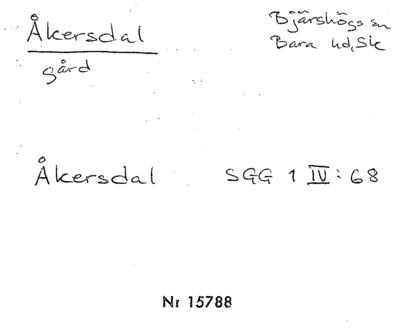 Åkersdal
gård
Bjärshögs sn
Bara hd, Sk
Åkersdal SGG 1 IV:68
Nr 15788